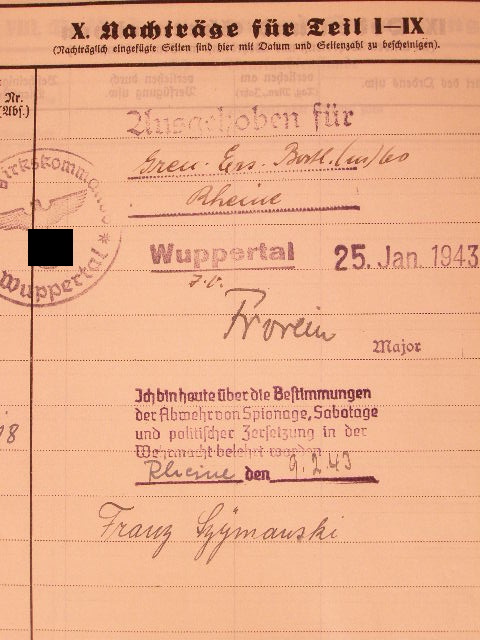 X. Nachträge für Teil I-IX
(Nachträglich eingefügte Seiten sind hier mit Datum und Seitenzahl zu bescheinigen).
Nr.
(Abs.)
Ausgehoben für
Gren. Ers. Batl. (m) 60
Rheine
Wuppertal
25. Jan. 1943
J.V.
Frorein
Major
Wuppertal
Ich bin heute über die Bestimmungen
der Abwehr von Spionage, Sabotage
und politischer Zersetzung in der
Wehrmacht belehrt worden
Rheine den 9.2.43
Franz Szÿmanski